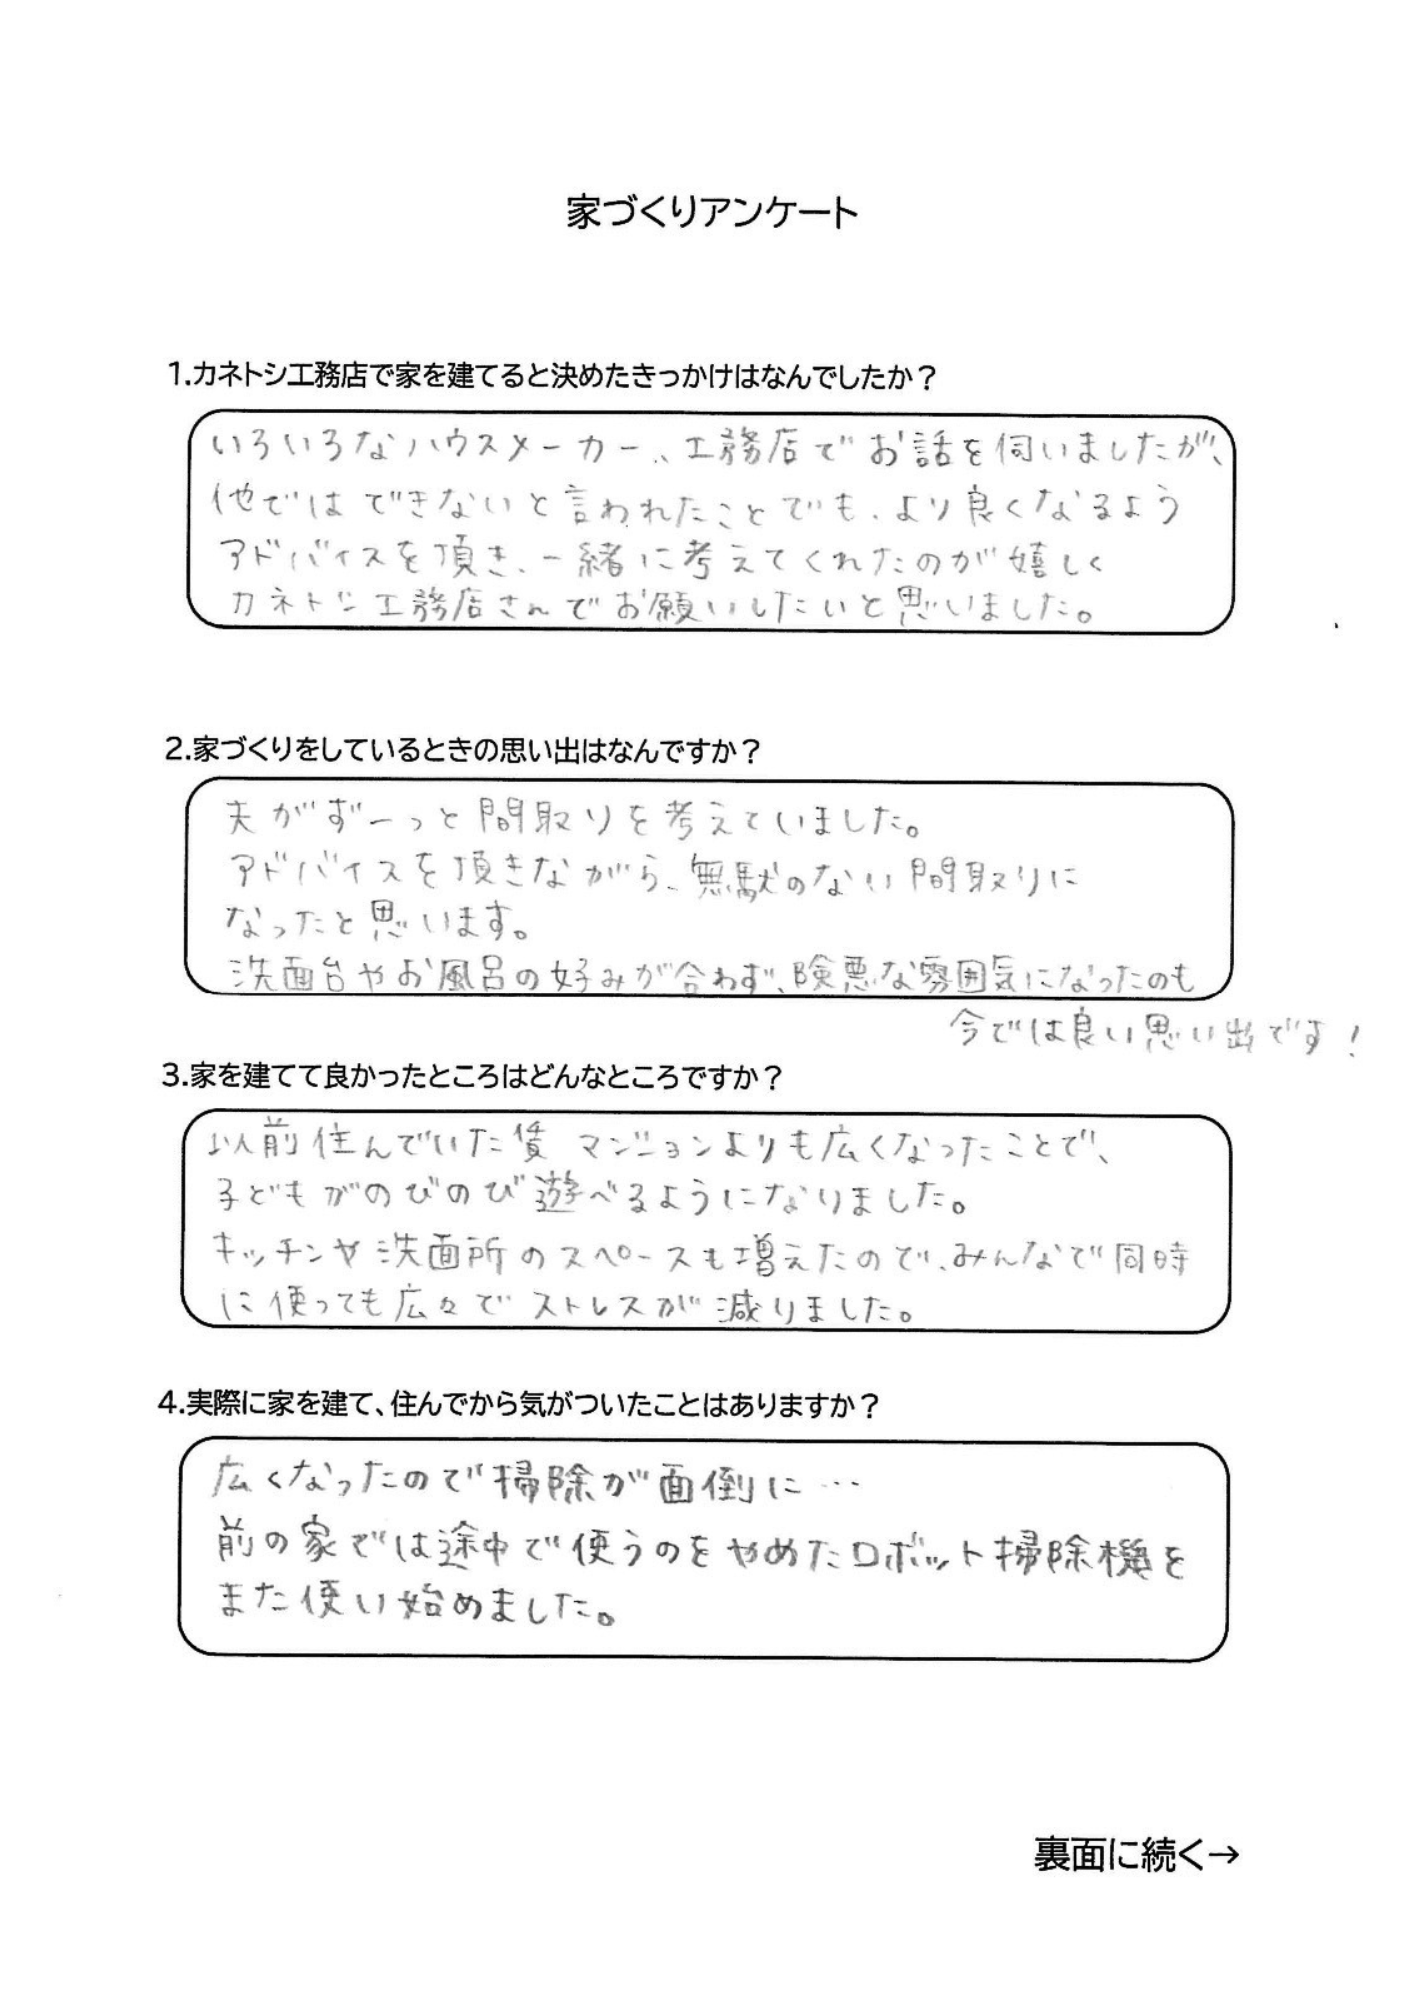 家づくりアンケート
1.カネトシ工務店で家を建てると決めたきっかけはなんでしたか？
いろいろなハウスメーカー、工務店でお話を伺いましたが、
他ではできないと言われたことでも、より良くなるよう
アドバイスを頂き、一緒に考えてくれたのが嬉しく
カネトシ工務店さんでお願いしたいと思いました。
2.家づくりをしているときの思い出はなんですか？
夫がずーっと間取りを考えていました。
アドバイスを頂きながら、無駄のない間取りに
なったと思います。
洗面台やお風呂の好みが合わず、険悪な雰囲気になったのも
今では良い思い出です！
3.家を建てて良かったところはどんなところですか？
以前住んでいた賃マンションよりも広くなったことで、
子どもがのびのび遊べるようになりました。
キッチンや洗面所のスペースも増えたので、みんなで同時
に使っても広々でストレスが減りました。
4.実際に家を建て、住んでから気がついたことはありますか？
広くなったので掃除が面倒に…
前の家では途中で使うのをやめたロボット掃除機を
また使い始めました。
裏面に続く→